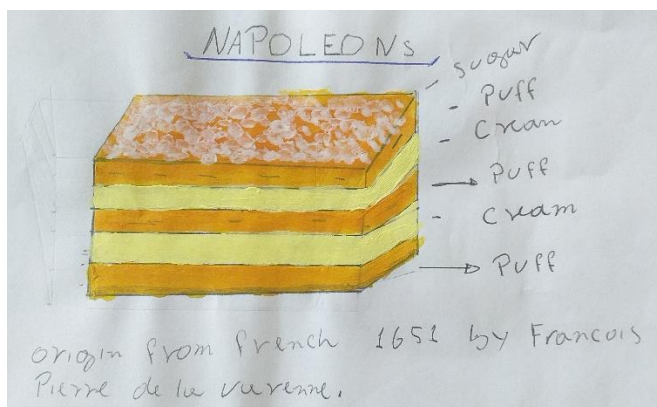 NAPOLEONs
sugar
Puff
Cream
Puff
Cream
Puff
origin from french 1651 by Francois
Pierre de la varenne.